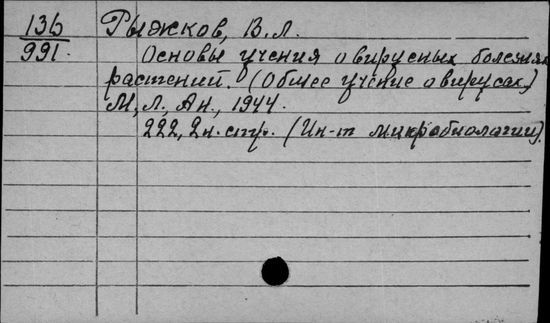 136 Рыжков, В. Л.
991.
Основы учения о вирусных болезнях
растений. (Общее учение о вирусах)
М, Л, Ан., 1944.
222, 2н. стр. (Ин-т микробиологии).